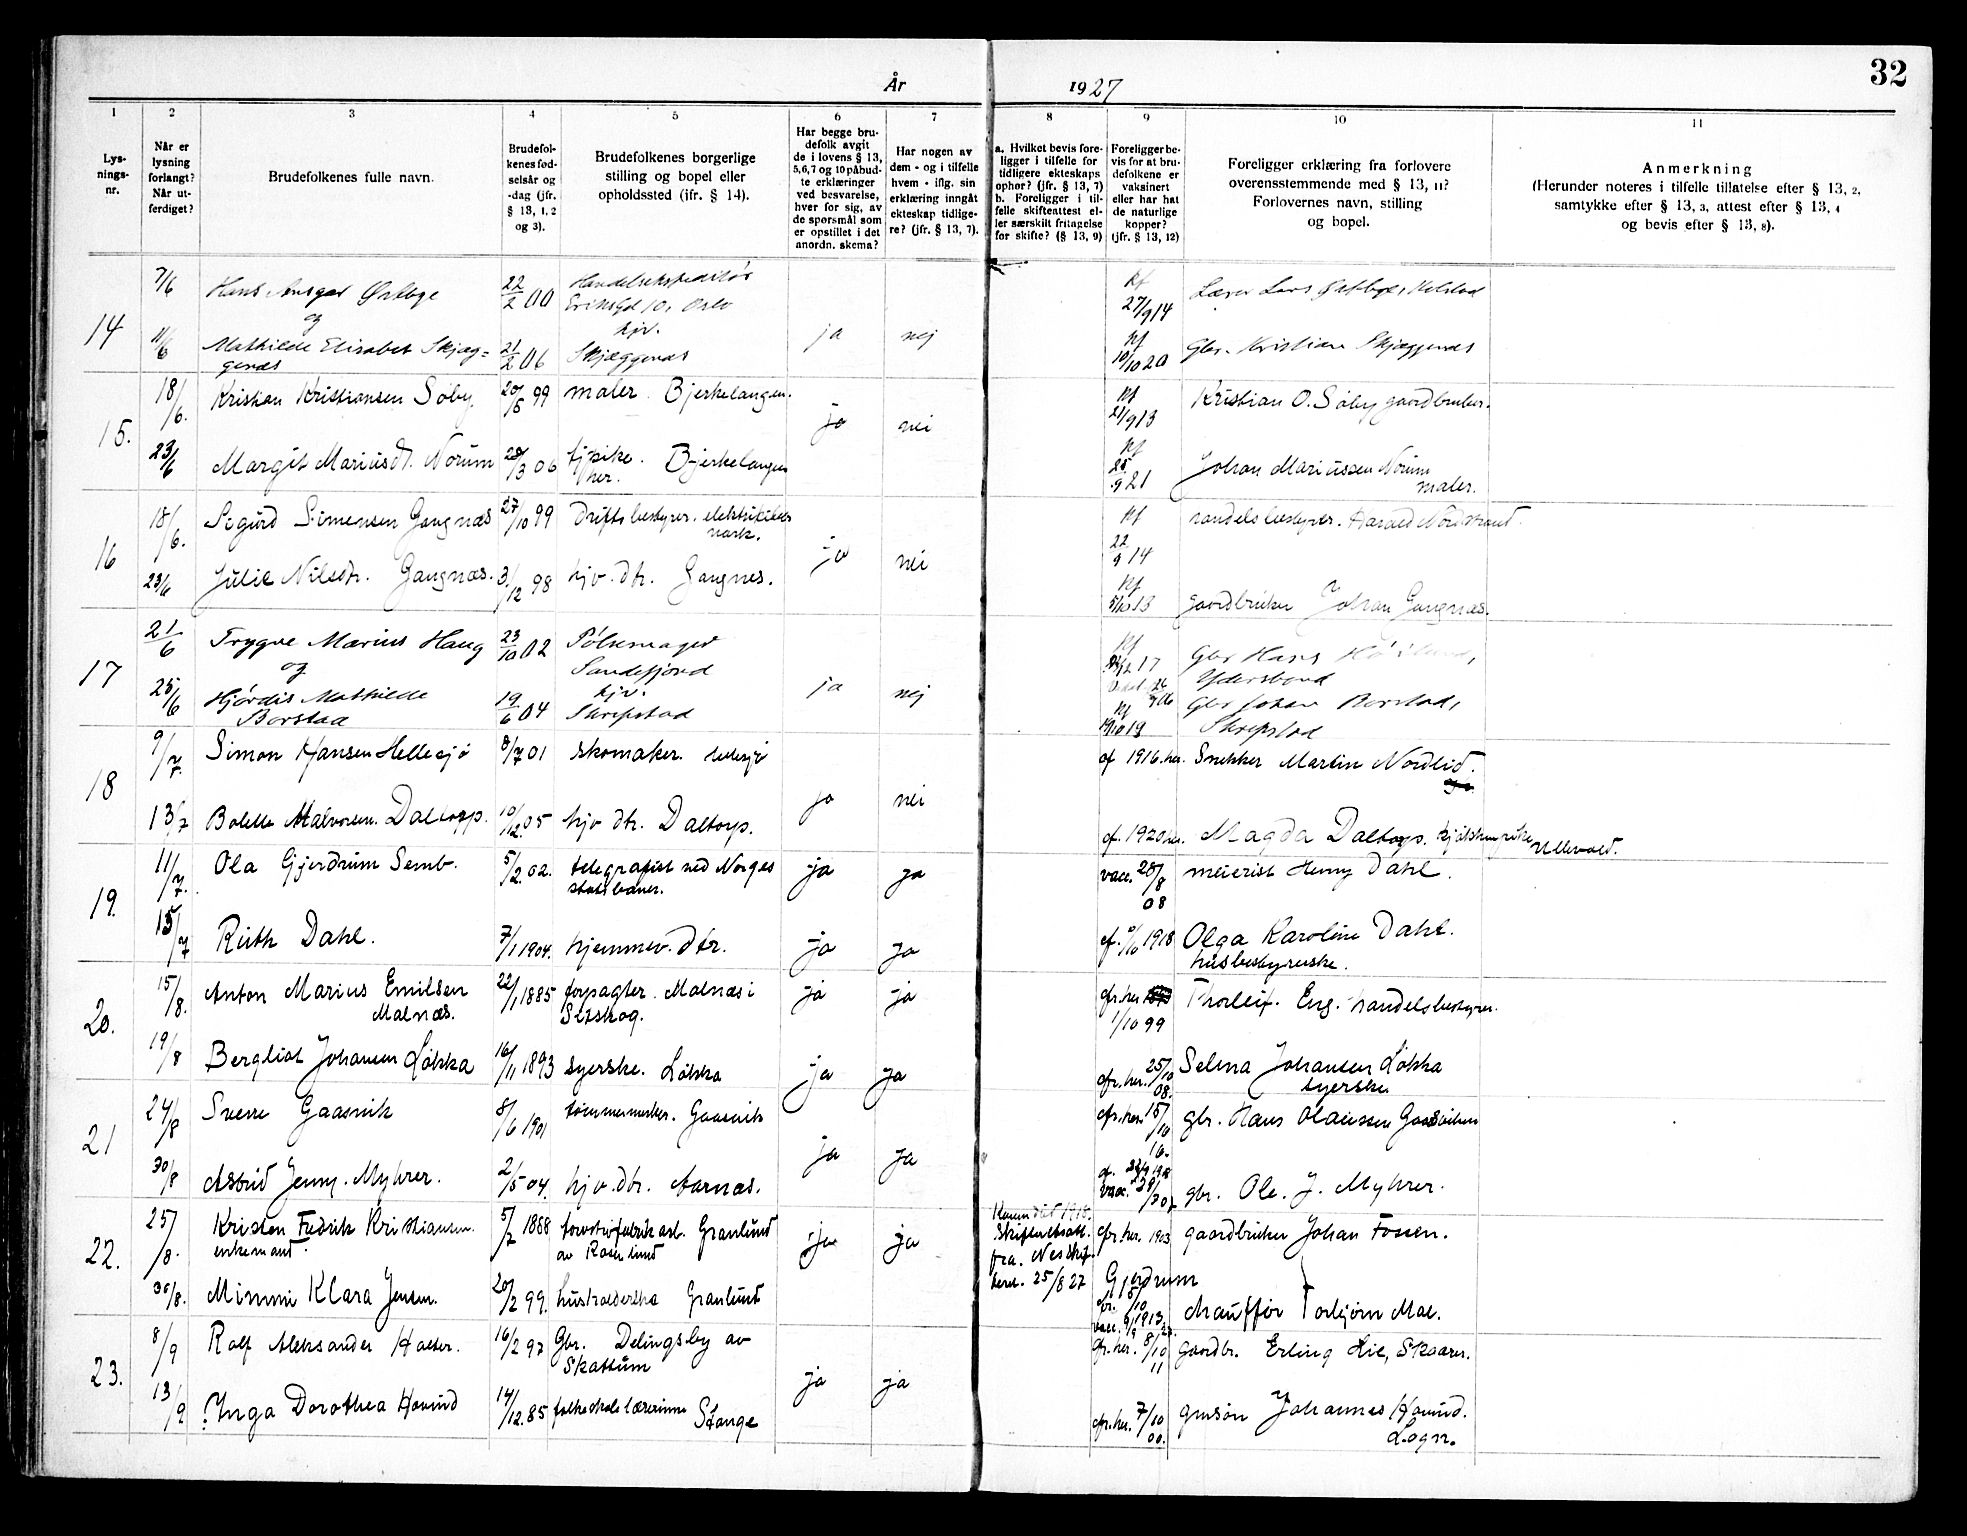 32
År 1927
1 2 3 4 5 6 7 8 9 10 11
Lys-
nings-
nr.
Når er
lysning
forlangt?
Når ut-
ferdiget?
Brudefolkenes fulle navn.
Brudefol-
kenes fød-
selsår og
-dag (jfr.
§ 13, 1, 2
og 3).
Brudefolkenes borgerlige
stilling og bopel eller
opholdssted (jfr. § 14).
Har begge bru-
defolk avgit
de i lovens § 13,
5,6,7 og 10 påbud-
te erklæringer
ved besvarelse,
hver for sig, av
de spørsmål som
er opstillet i det
anordn. skema?
Har nogen av
dem - og i tilfelle
hvem - iflg. sin
erklæring inngått
ekteskap tidlige-
re? (jfr. § 13, 7).
a. Hvilket bevis fore-
ligger i tilfelle for
tidligere ekteskaps
ophør? (jfr. § 13, 7)
b. Foreligger i til-
felle skifteattest el-
ler særskilt fritagelse
for skifte? (§ 13, 9)
Foreligger be-
vis for at bru-
defolkene er
vaksinert
eller har hat
de naturlige
kopper?
(jfr. § 13, 12)
Foreligger erklæring fra forlovere
overensstemmende med § 13, 11?
Forlovernes navn, stilling
og bopel.
Anmerkning
(Herunder noteres i tilfelle tillatelse efter § 13, 2,
samtykke efter § 13, 3, attest efter § 13, 4
og bevis efter § 13, 8).
14 7/6 Hans Ansgar Østbye 22/2 00 Handelsekspeditør
Eriksgt 10, Oslo
27/9 14 Lærer Lars Østbye,
og
11/6 Mathilde Elisabet Skjæg=
genæs 21/2 06 hjv.
Skjæggenæs ja nej
10/10 20 Gbr. Kristian Skjæggenæs
15. 18/6. Kristian Kristiansen Søby. 20/5 99 maler. Bjerkelangen.
ja nei
21/9 13 Kristian O. Søby gaardbruker.
23/6 Margit Mariusdt. Norum 28/3 06 tj. pike.
her. Bjerkelangen
25/9 21 Johan Mariussen Norum
maler.
16 18/6. Sigurd Simensen Gangnæs 27/10 99 Driftsbestyrer. elektricitets
verk.
ja nei
22/9 14 handelsbestyrer. Harald Nordstrand.
23/6 Julie Nilsdtr. Gangnæs. 3/12 98 hjv. dtr. Gangnes.
5/10 13 gaardbruker Johan Gangnæs.
17 21/6 Trygve Marius Haug 23/10 02 Pølsemager
Sandefjord
17 Gbr Hans
og
25/6 Hjørdis Mathilde
Borstad 19/6 04 hjv.
Skrepstad ja nej
19/10 19 Gbr Johan Borstad,
Skrepstad
18 9/7. Simon Hansen Hellesjø 8/7 01 skomaker. Hellesjø
ja nei
af 1916. her. Snekker Martin Nordlid.
13/7 Bolette Halvorsen. Daltorp. 10/12. 05 hjv dtr. Daltorp.
af. 1920 her. Magda Daltorp. kjøkkenpike Ullevaal.
19. 11/7. Ola Gjerdrum Semb. 5/2. 02. telegrafist ved Norges
statsbaner. ja ja
vacc. 28/8
08 meierist Henry Dahl.
15/7 Ruth Dahl. 7/1 1904. hjemmev. dtr. ja ja
1918 Olga Karoline Dahl.
husbestyrerske.
20. 15/8. Anton Marius Emilsen
Malnæs. 22/1 1885 forpagter. Malnæs i
Setskog. ja ja
afr. her
1/10 99 Thorleif. Eng. handelsbestyrer.
19/8 Bergliot Johansen Løkka 16/11 1893 syerske. Løkka ja ja
afr. her. 25/10
08. Selma Johansen Løkka
syerske.
21 24/8 Sverre Gaasvik 8/6 1901 tømmermerker. Gaasvik
ja ja
afr. her. 15/10
16. gbr. Hans Olaussen Gaasviken
30/8 Astrid Jenny. Myhrer. 2/5 04. hjv. dtr. Aarnæs.
gbr. Ole. J. Myhrer.
22. 25/8. Kristen Fredrik Kristiansen.
enkemand. 5/7 1888 Granlund
ja ja
Konen død 1918.
Skifteattest.
fra. Nes
25/8 27
afr. her. 1903 gaardbruker Johan Fossen.
30/8. Mimmi Klara Jensen. 20/2 99. husholderske Granlund
Gjerdrum
5/10
1913
chauffør Torbjørn Moe.
23. 8/9 Rolf Aleksander Holter. 16/2 97 Gbr. Delingsby av
Skattum
ja ja
afr. her. 8/10
11 gaardbr. Erling Lie, Skaarer.
13/9 Inga Dorothea Hovind 14/12. 85 folkeskolelærerinne
Stange
afr. her. 7/10
00. Johannes Hovind.
Logn.